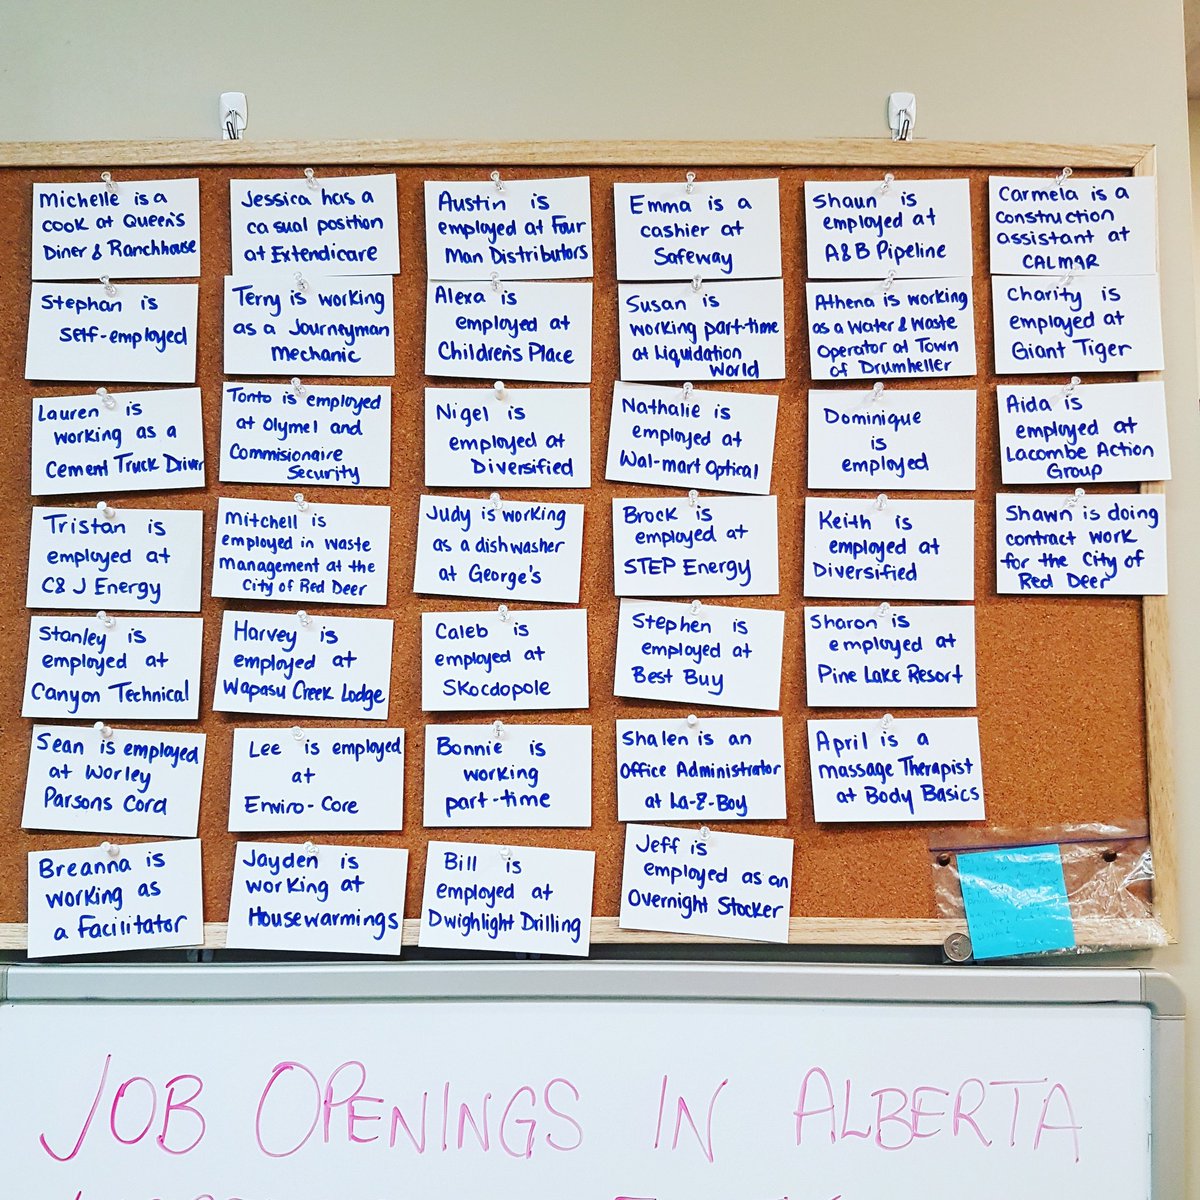 Michelle is a
cook at Queen's
Diner & Ranchhouse
Jessica has a
casual position
at Extendicare
Austin is
employed at Four
Man Distributors
Emma is a
cashier at
Safeway
Shaun is
employed at
A&B Pipeline
Carmela is a
construction
assistant at
CALMAR
Stephan is
self-employed
Terry is working
as a Journeyman
Mechanic
Alexa is
employed at
Children's Place
Susan is
working part-time
at Liquidation
World
Athena is working
as a Water & Waste
Operator at Town
of Drumheller
Charity is
employed at
Giant Tiger
Lauren is
working as a
Cement Truck Driver
Tonto is employed
at Olymel and
Commisionaire
Security
Nigel is
employed at
Diversified
Nathalie is
employed at
Wal-mart Optical
Dominique
is
employed
Aida is
employed at
Lacombe Action
Group
Tristan is
employed at
C&J Energy
Mitchell is
employed in waste
management at the
City of Red Deer
Judy is working
as a dishwasher
at George's
Brock is
employed at
STEP Energy
Keith is
employed at
Diversified
Shawn is doing
contract work
for the City of
Red Deer
Stanley is
employed at
Canyon Technical
Harvey is
employed at
Wapasu Creek Lodge
Caleb is
employed at
Skocdopole
Stephen is
employed at
Best Buy
Sharon is
employed at
Pine Lake Resort
Sean is employed
at Worley
Parsons Cord
Lee is employed
at
Enviro-Core
Bonnie is
working
part-time
Shalen is an
Office Administrator
at La-Z-Boy
April is a
massage Therapist
at Body Basics
Breanna is
working as
a Facilitator
Jayden is
working at
Housewarmings
Bill is
employed at
Dwighlight Drilling
Jeff is
employed as an
Overnight Stocker
JOB OPENINGS IN ALBERTA